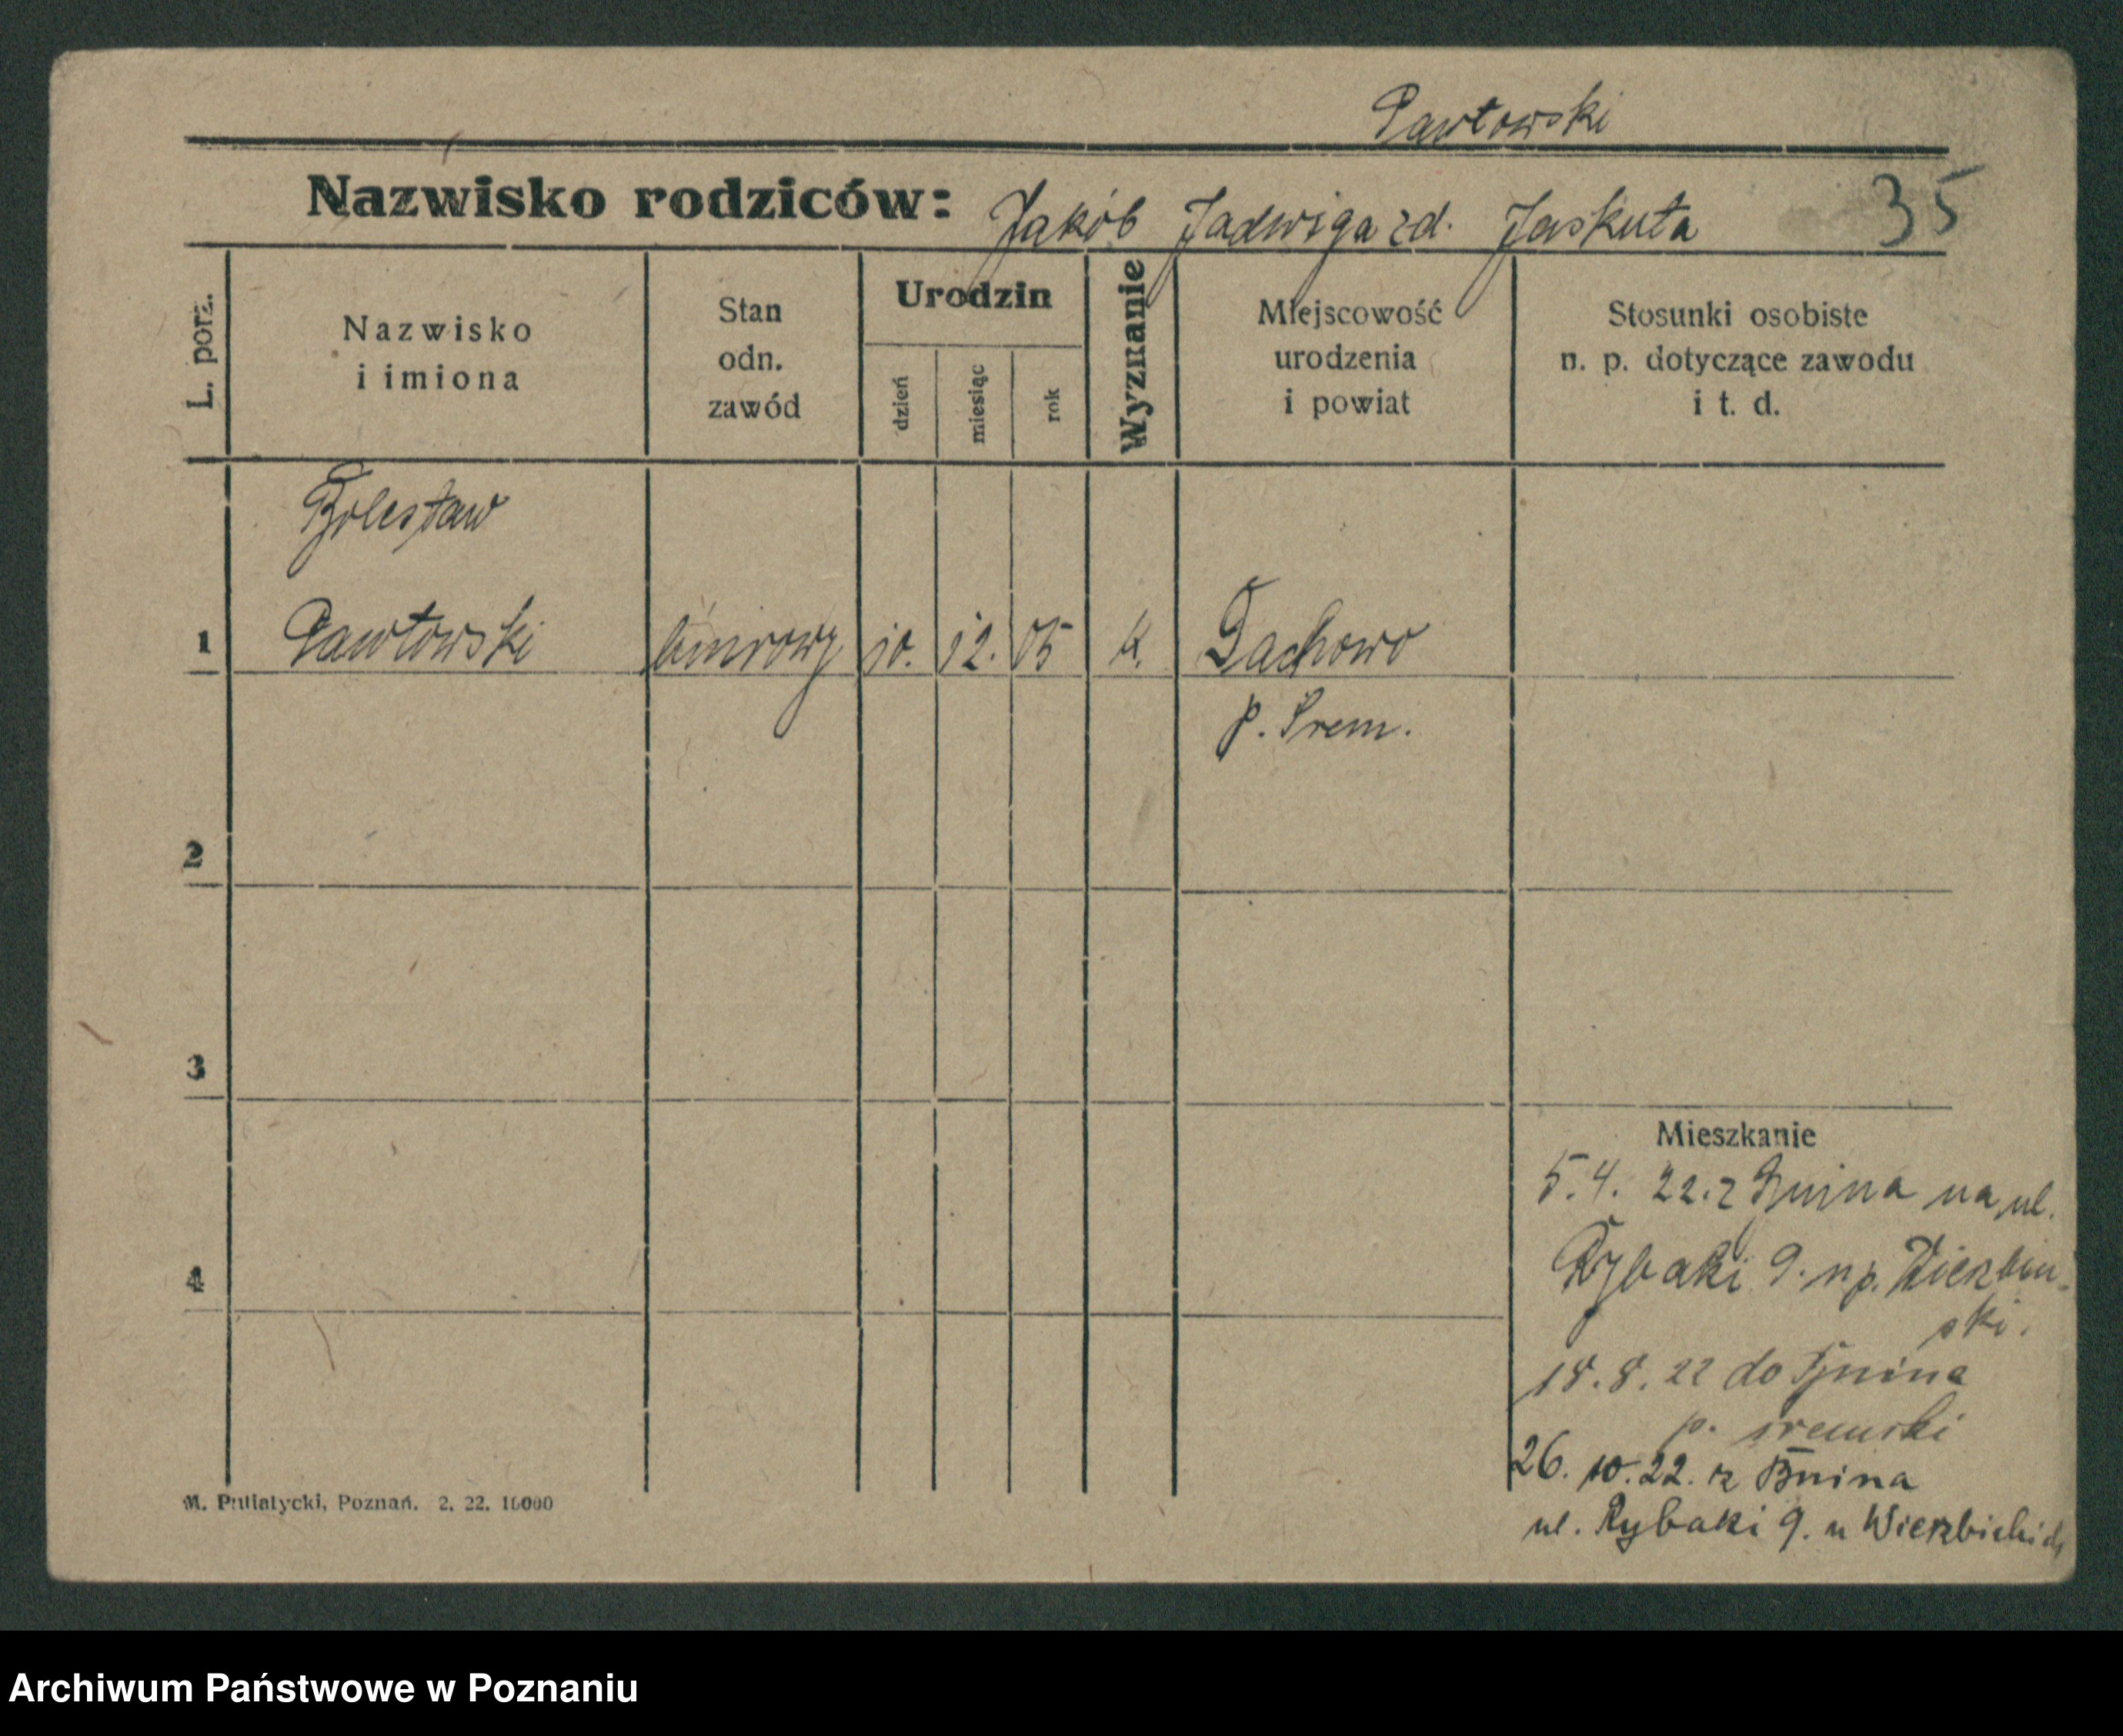 Pawłowski
Nazwisko rodziców: Jakób Jadwiga zd. Jaskuła 35
L. porz.
Nazwisko i imiona
Stan odn. zawód
Urodzin
dzień
miesiąc
rok
Wyznanie
Miejscowość urodzenia i powiat
Stosunki osobiste n. p. dotyczące zawodu i t. d.
Bolesław
1 Pawłowski 10. 12. 05 k. Dachowo
p. Śrem.
2
3
4
Mieszkanie
5.4. 22. z Bnina na ul.
Rybaki 9. np. Wierzbin-
ski.
18.8.22 do Bnina
p. sremski
26. 10. 22. z Bnina
ul. Rybaki 9. u Wierzbickich
M. Putiatycki, Poznań. 2. 22. 10000
Archiwum Państwowe w Poznaniu